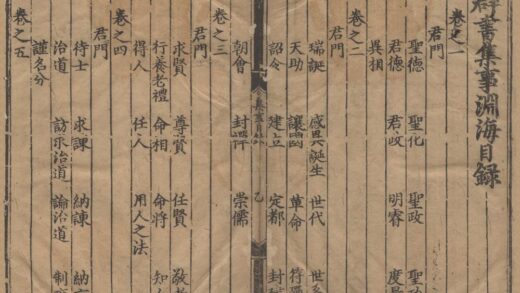 群書集事淵海目錄
卷之一
君門
聖德 聖化 聖政 聖
君德 君政 明睿 度
異相
卷之二
君門
瑞誕 感異誕生 世代 世
天助 讓國 革命 符
詔令 建立 定都 封
乙
朝會 封禪 崇儒
卷之三
君門
求賢 尊賢 任賢 敬
行養老禮 命相 命將 知
得人 任人 用人之法
卷之四
君門
待士 求諫 納諫 納
治道 訪求治道 論治道 制
謹名分
卷之五